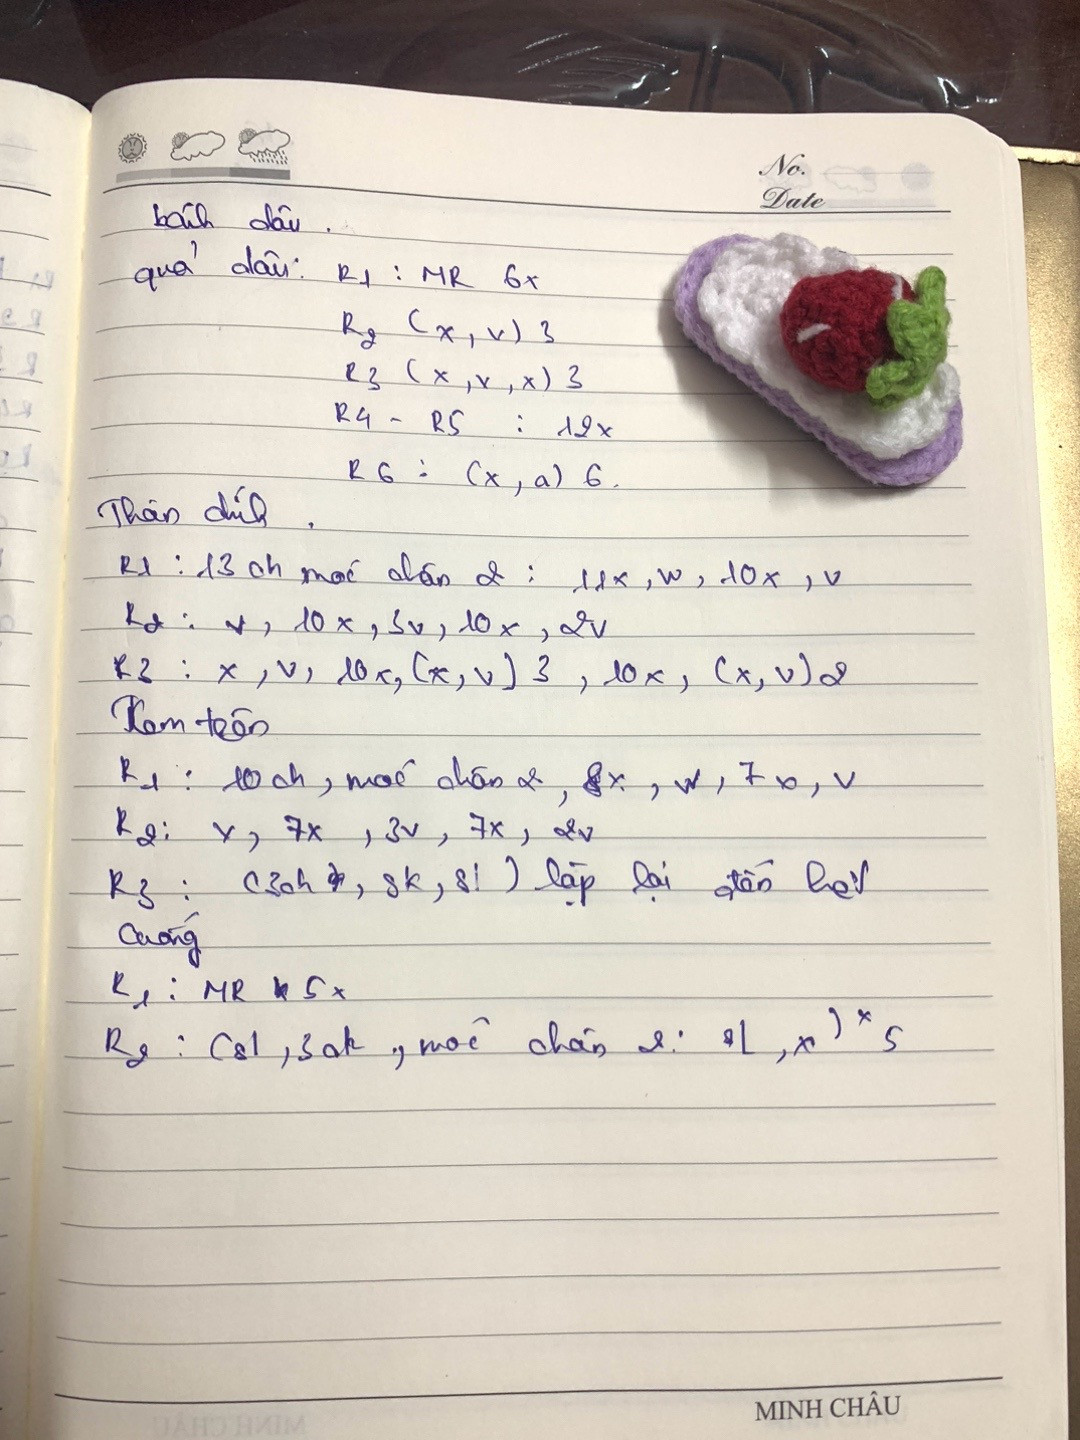 No.
Date
bánh dâu.
quả dâu: R1 : MR 6x
R2 (x, v) 3
R3 (x, v, x) 3
R4 - R5 : 12x
R6 : (x, a) 6.
Thân
R1 : 13 ch móc chân 2 : 11x, w, 10x, v
R2 : v, 10x, 3v, 10x, 2v
R3 : x, v, 10x, (x, v) 3, 10x, (x, v) 2
Kem trên
R1 : 10 ch, móc chân 2, 8x, w, 7x, v
R2: v, 7x, 3v, 7x, 2v
R3 : (3ch, sk, sl) lặp lại đến hết
Cuống
R1 : MR 5x
R2 : (sl, 3ch, móc chân 2: sl, x) x 5
MINH CHÂU